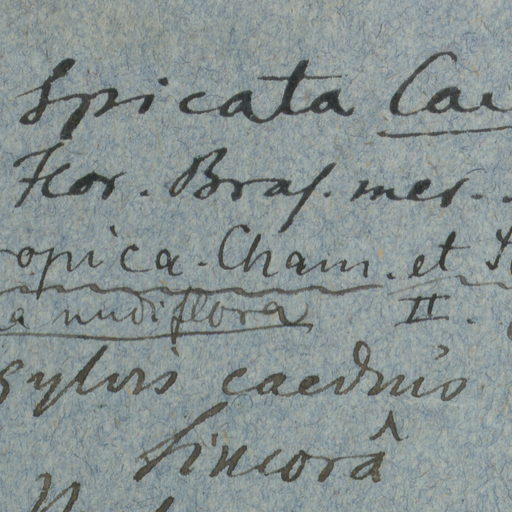 spicata
Flor. Bras. mer.
ropica. Cham. et
a nudiflora II.
sylvis caeduis
Sincorâ